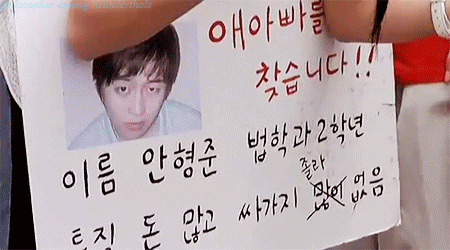 philosopher among neanderthals
애아빠를
찾습니다!!
이름 안형준 법학과 2학년
졸라
특징 돈 많고 싸가지 많이 없음